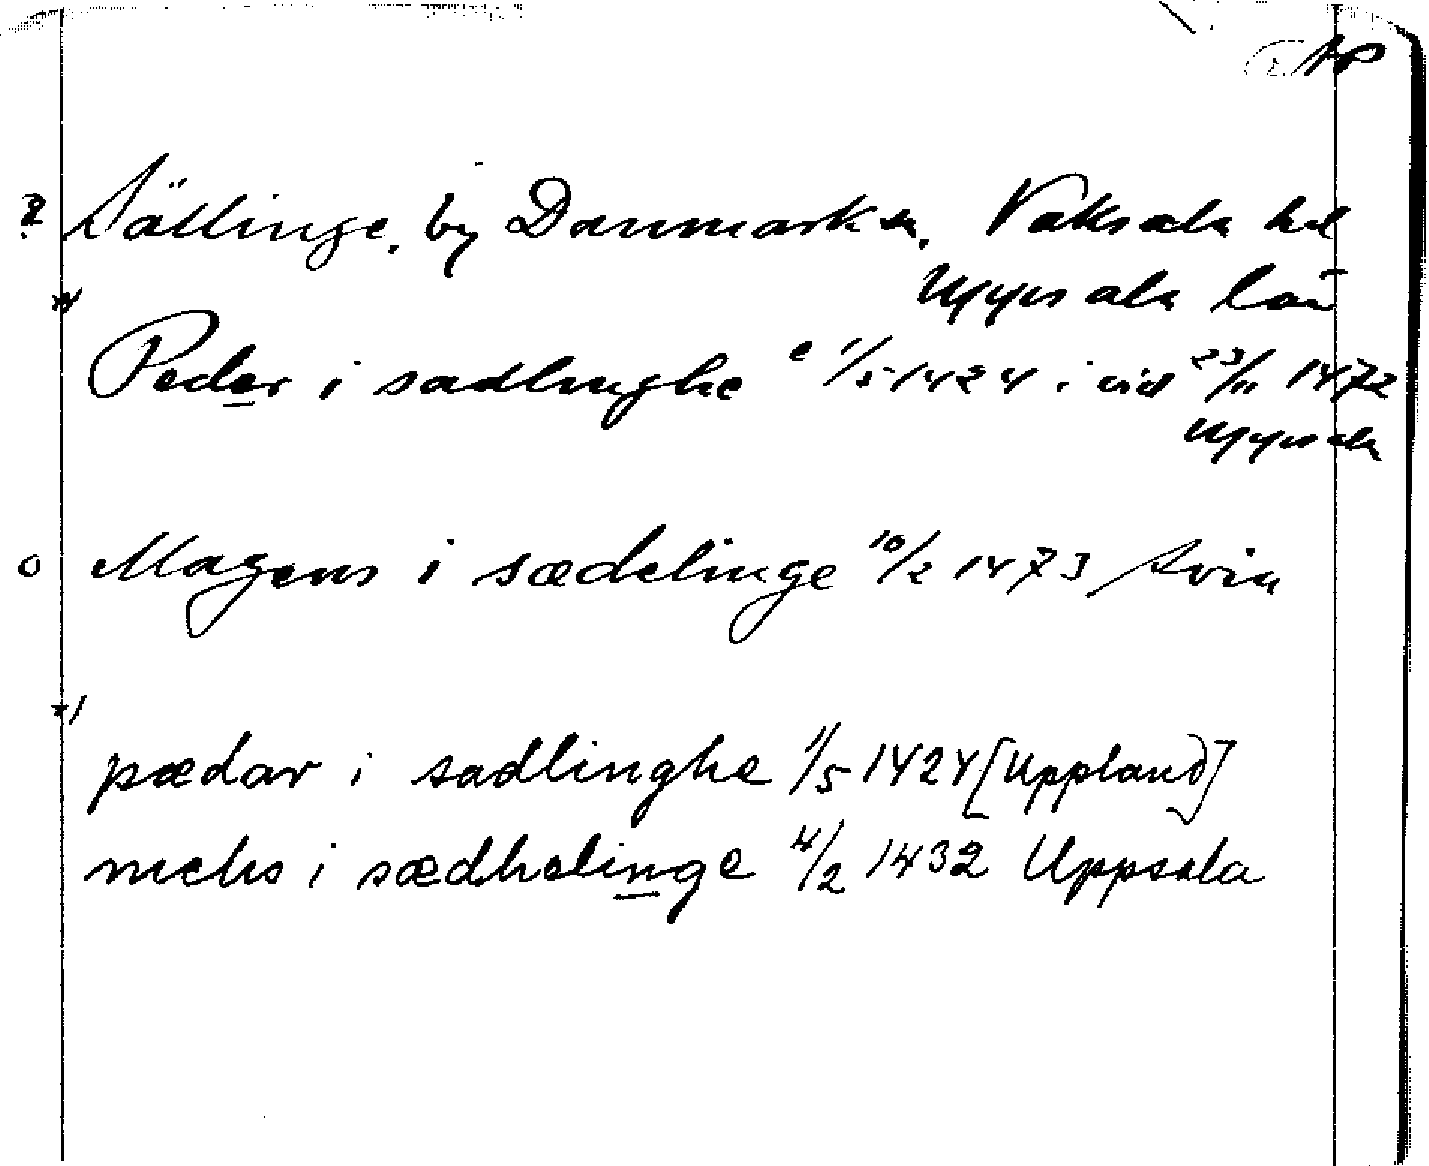 Sällinge, by Danmarks sn, Vaksala hd
Uppsala län
Peder i sadlinghe 1/5 1424 i vid 23/11 1472
Uppsala
Magens i sædelinge 10/2 1473
pædar i sadlinghe 1/5 1424 [Uppland]
niclis i sædhelinge 4/2 1432 Uppsala